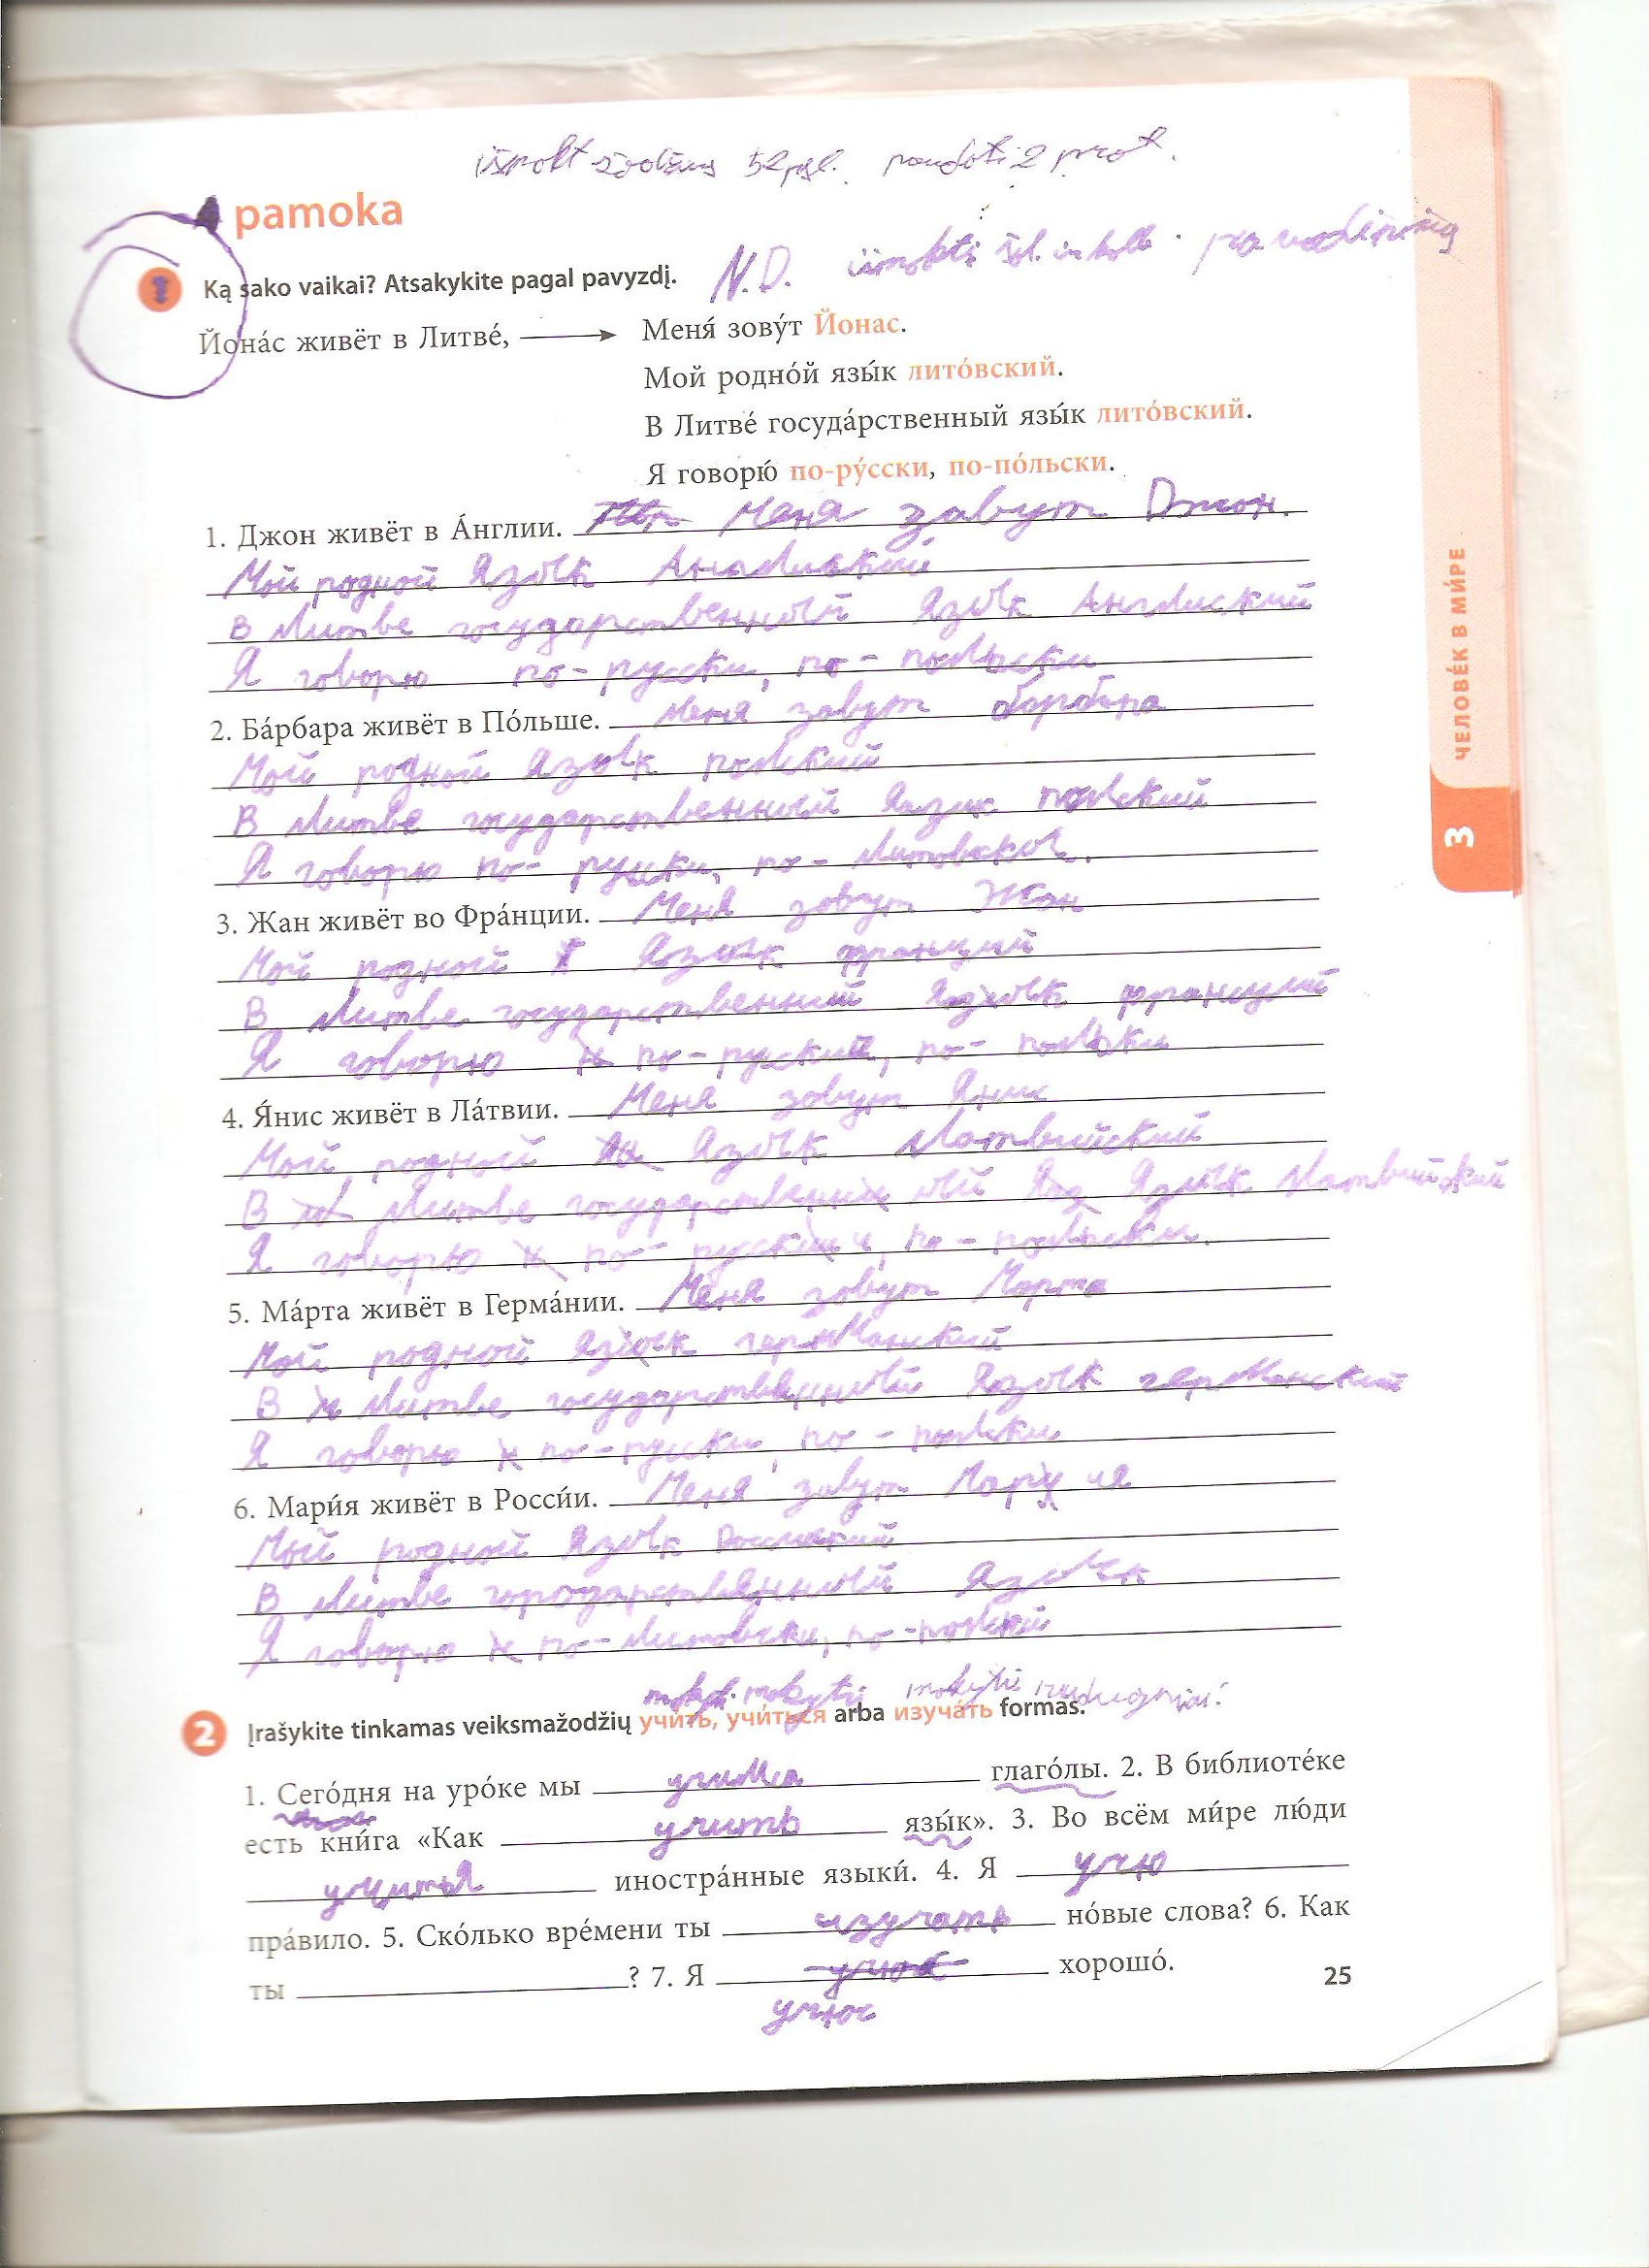 išmokt žodžius 52psl.
pamoka
N.D.
1 Ką sako vaikai? Atsakykite pagal pavyzdį.
Йона́с живёт в Литве́, → Меня́ зову́т Йонас.
Мой родно́й язы́к лито́вский.
В Литве́ госуда́рственный язы́к лито́вский.
Я говорю́ по-ру́сски, по-по́льски.
1. Джон живёт в А́нглии. Меня завут Джон.
Мой родной Язык
В Литве государственный Язык Англиский
Я говорю по-русски, по-польски
2. Ба́рбара живёт в По́льше. Меня завут барбара
Мой родной Язык полский
В Литве государственный Язик полский
Я говорю по-руски, по-
3. Жан живёт во Фра́нции. Меня зовут Жан
Мой родной Язык франций
В Литве государственний Язык франций
Я говорю по-руский, по-
4. Я́нис живёт в Ла́твии. Меня зовут Янис
Мой родной Язык Латвийский
В Литве государственный Язык Латвийский
Я говорю по-русски, по-польски.
5. Ма́рта живёт в Герма́нии. Меня зовут Марта
Мой родной Язык германский
В Литве государственный Язык германский
Я говорю по-руски, по-полски
6. Мари́я живёт в Росси́и. Меня завут Мария
Мой родной Язык
В Литве Язык
Я говорю по-литовски, по-полский
mokyti mokytis
2 Įrašykite tinkamas veiksmažodžių учи́ть, учи́ться arba изуча́ть formas.
1. Сего́дня на уро́ке мы глаго́лы. 2. В библиоте́ке
есть кни́га «Как учить язы́к». 3. Во всём ми́ре лю́ди
иностра́нные языки́. 4. Я учю
пра́вило. 5. Ско́лько вре́мени ты изучать но́вые слова? 6. Как
ты ? 7. Я хорошо́.
учюс
25
ЧЕЛОВЕ́К В МИ́РЕ
3